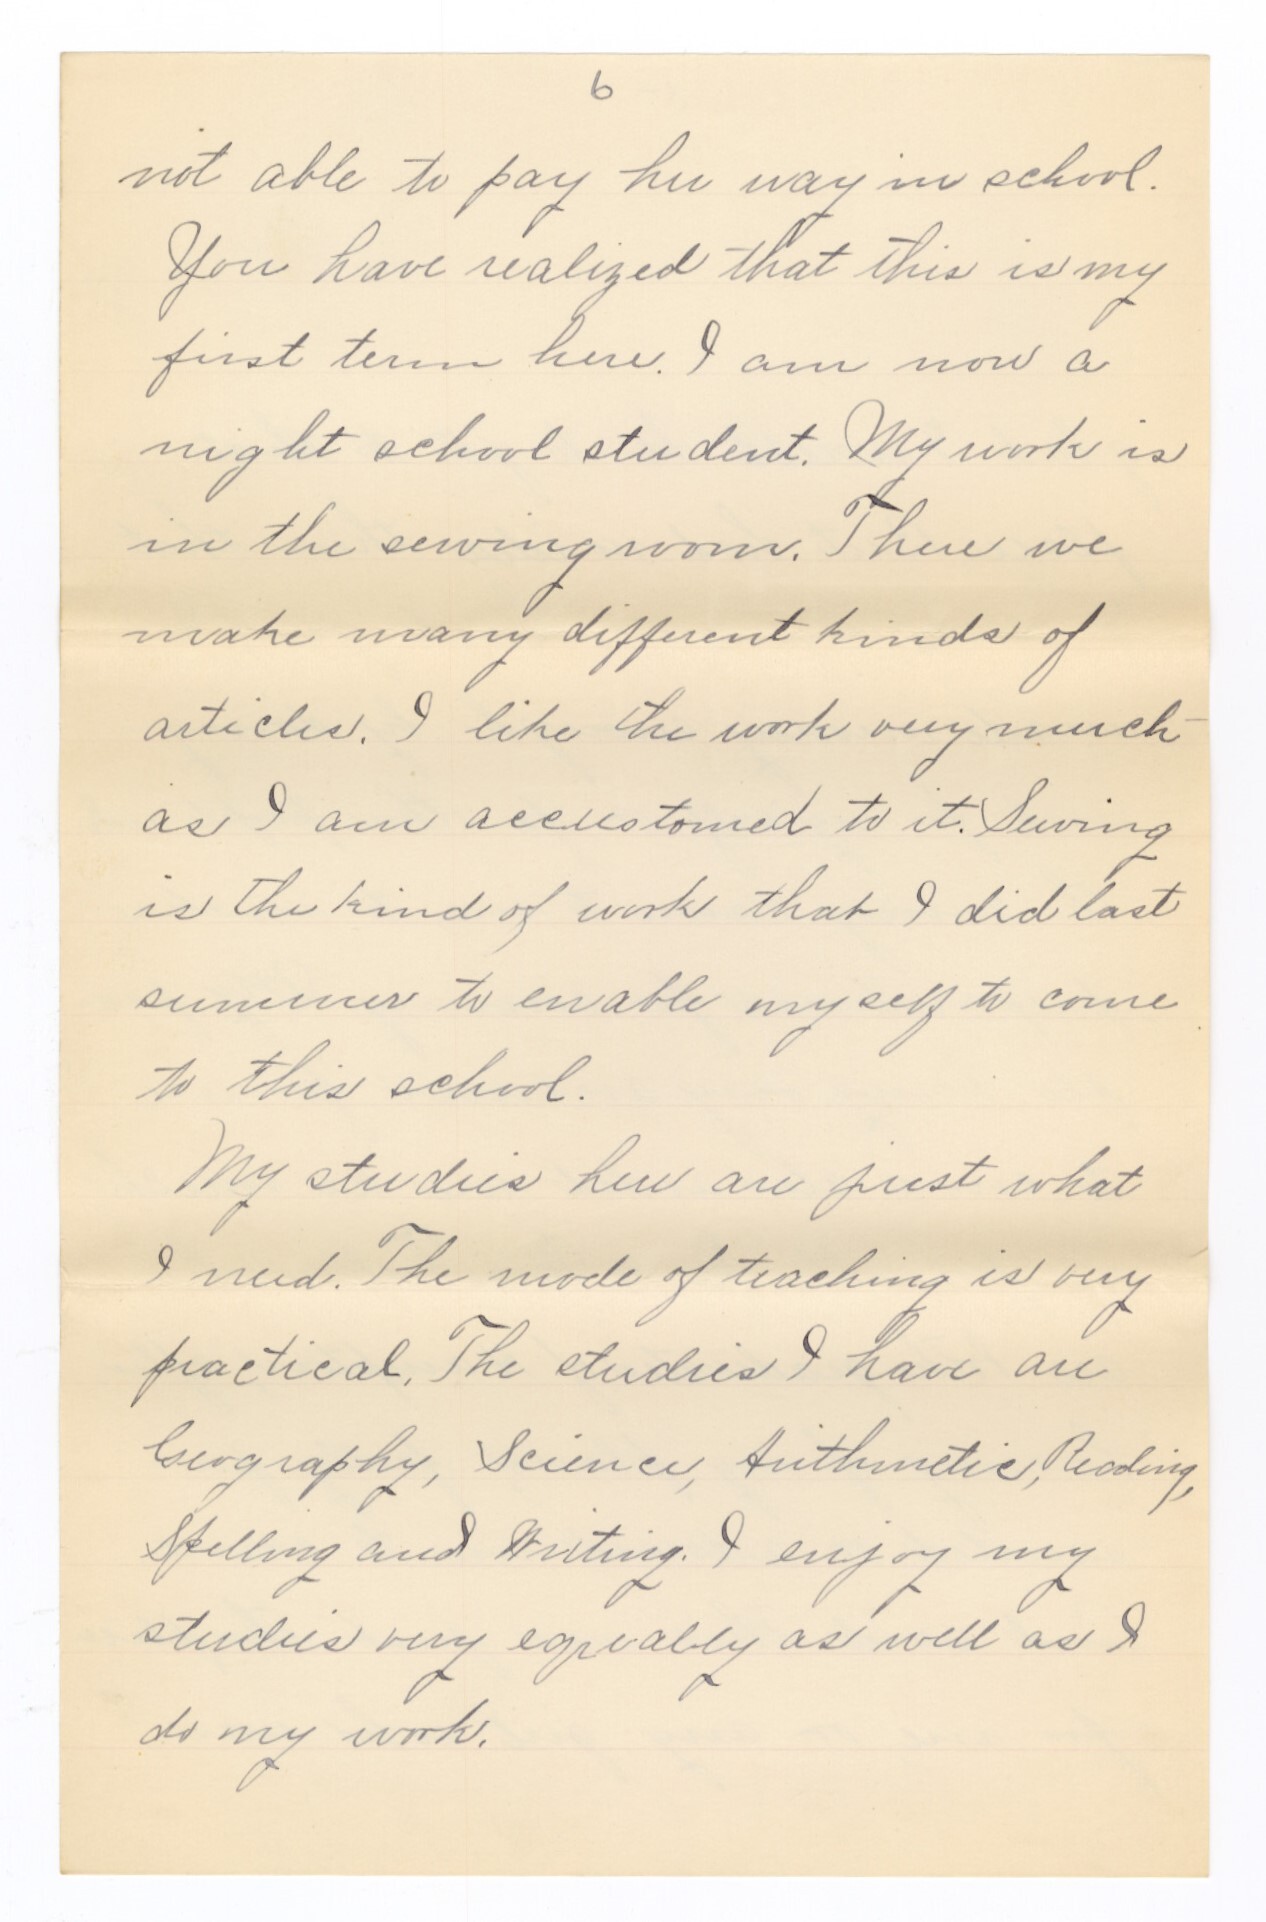 6
not able to pay her way in school.
You have realized that this is my
first term here. I am now a
night school student. My work is
in the sewing room. There we
make many different kinds of
articles. I like the work very much
as I am accustomed to it. Sewing
is the kind of work that I did last
summer to enable myself to come
to this school.
My studies here are just what
I need. The mode of teaching is very
practical. The studies I have are
Geography, Science, Arithmetic, Reading,
Spelling and Writing. I enjoy my
studies very equably as well as I
do my work.